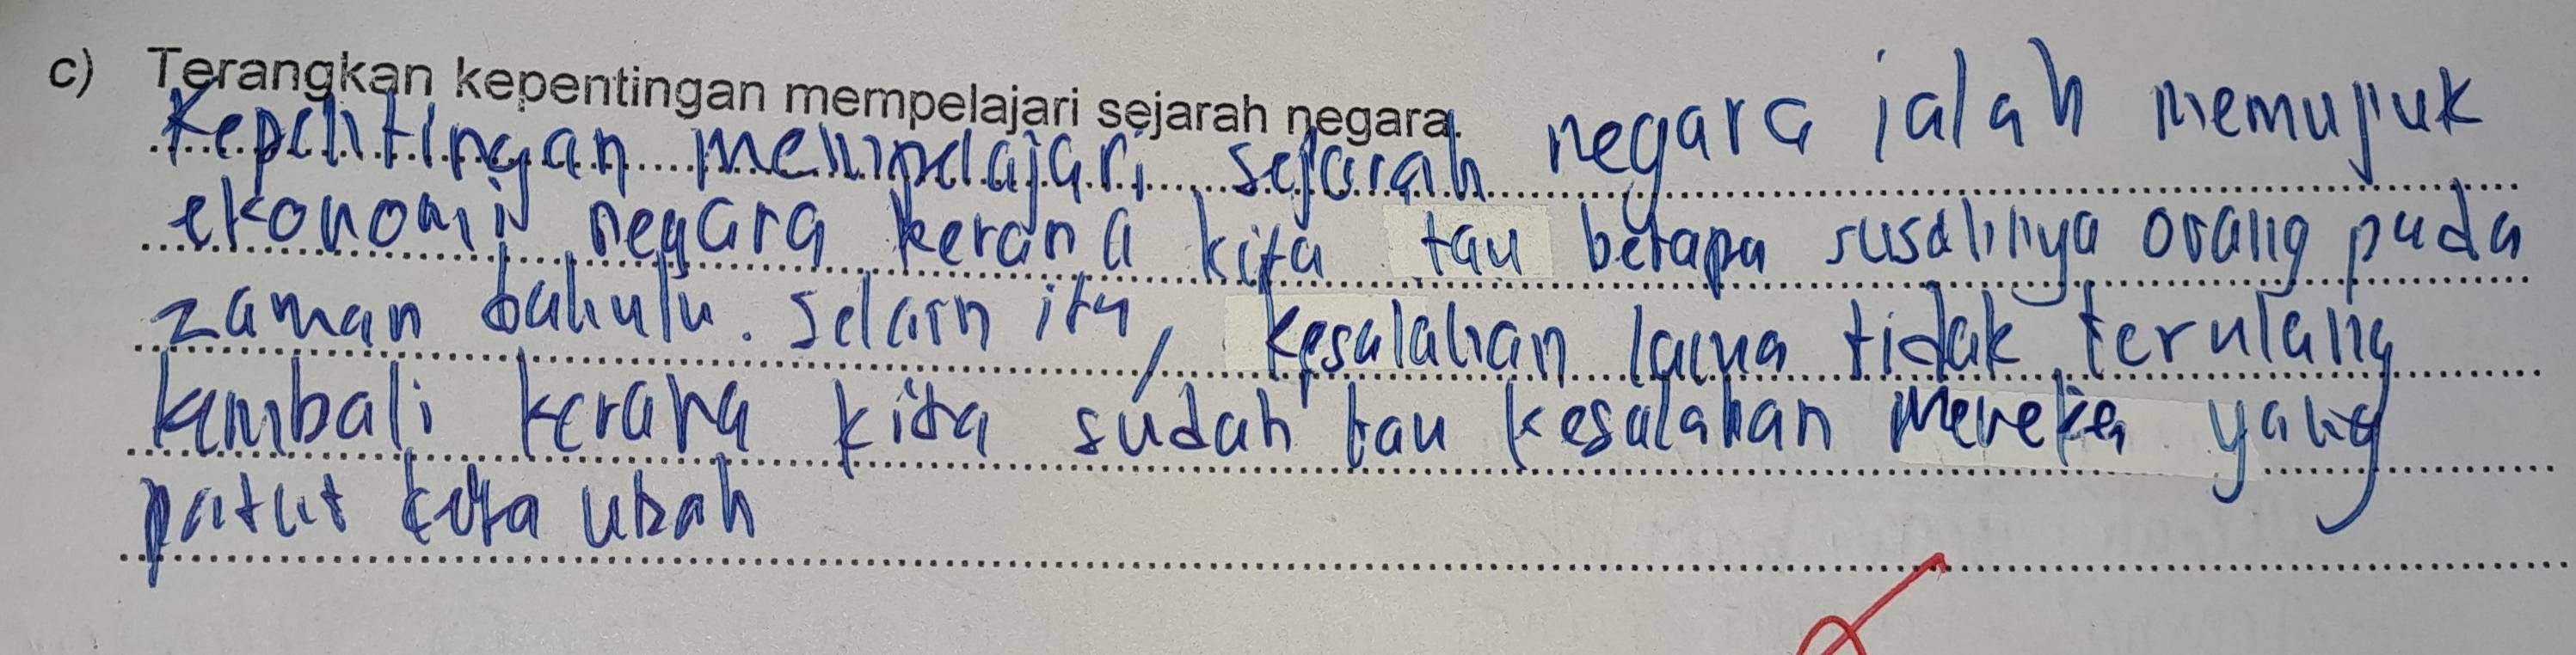 c) Terangkan kepentingan mempelajari sejarah negara.
Kepentingan mempelajari sejarah negara ialah memujuk
ekonomi negara kerana kita tau betapa susahnya orang pada
zaman dahulu. Selain itu, kesalahan lama tidak terulang
kembali kerana kita sudah tau kesalahan mereka yang
patut kita ubah